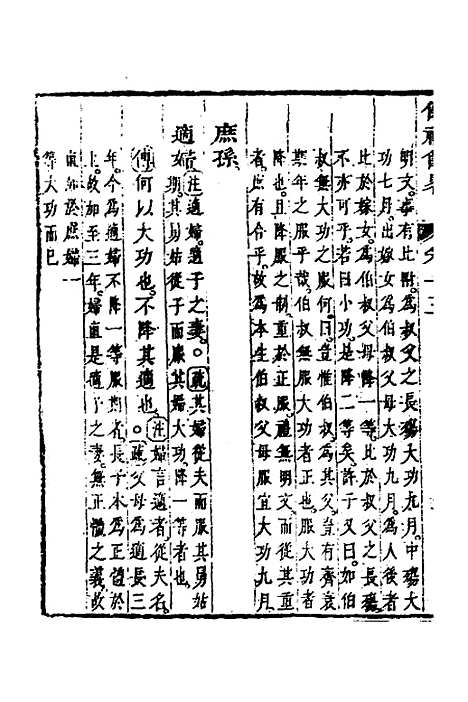 明文專有比附為叔父之長殤大功九月中殤大
功七月出嫁女為伯叔父母大功九月為人後者
比於嫁女為伯叔父母降一等比於叔父之長殤
不亦可乎若曰小功是降二等矣許子又曰如伯
叔無大功之服何曰豈惟伯叔為其父豈有齊衰
期年之服乎哉伯叔無服大功者正也服大功者
降也且降服之制重於正服禮無明文而從其重
者庶有合乎故為本生伯叔父母服宜大功九月
庶孫
適婦注適婦適子之妻○疏其婦從夫而服其舅姑
期其舅姑從子而服其婦大功降一等者也
傳何以大功也不降其適也○注婦言適者從夫名
○疏父母為適長三
年今為適婦不降一等服期者長子本為正體於
上故加至三年婦直是適子之妻無正體之義故
直加於庶婦一
等大功而已